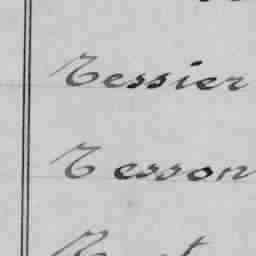 Tessier
Tesson